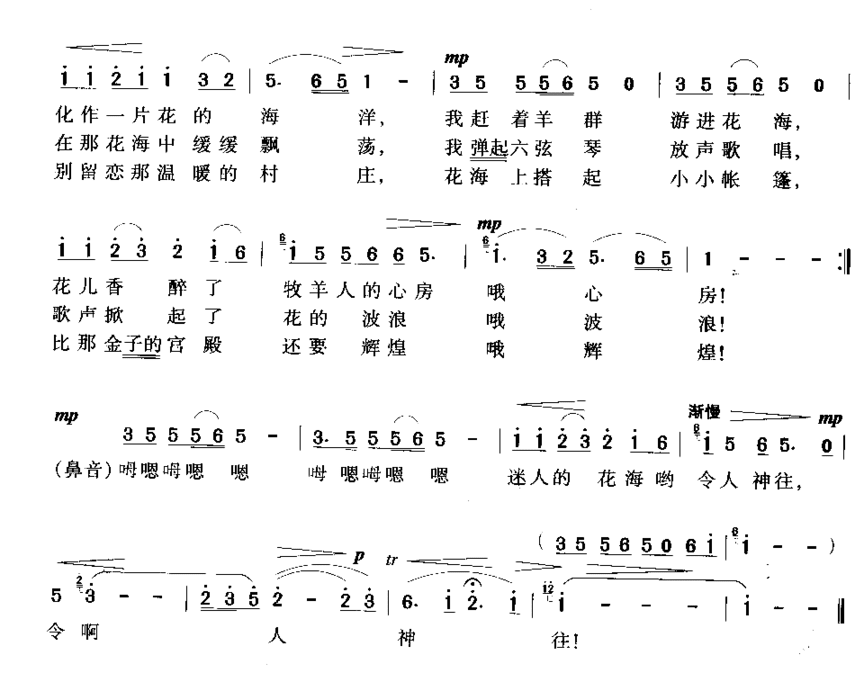 mp
i i 2 i i 3 2 | 5· 6 5 1 - | 3 5 5 5 6 5 0 | 3 5 5 6 5 0
化作一片花的 海 洋， 我赶 着羊 群 游进花 海，
在那花海中缓缓飘 荡， 我弹起六弦 琴 放声歌 唱，
别留恋那温暖的村 庄， 花海 上搭 起 小小帐 篷，
mp
i i 2 3 2 i 6 | 6 i 5 5 6 6 5· | 6 i· 3 2 5· 6 5 | 1 - - :||
花儿香 醉了 牧羊人的心房 哦 心 房！
歌声掀 起了 花的 波浪 哦 波 浪！
比那金子的宫殿 还要 辉煌 哦 辉 煌！
mp 渐慢 mp
3 5 5 5 6 5 - | 3· 5 5 5 6 5 - | i i 2 3 2 i 6 | 6 i 5 6 5· 0 |
(鼻音)呣嗯呣嗯 嗯 呣 嗯呣嗯 嗯 迷人的 花海哟 令人 神往，
( 3 5 5 6 5 0 6 i | 6 i - - )
p tr
5 2 3 - - | 2 3 5 2 - 2 3 | 6· i 2· i | i2 i - - - | i - - ||
令啊 人 神 往！